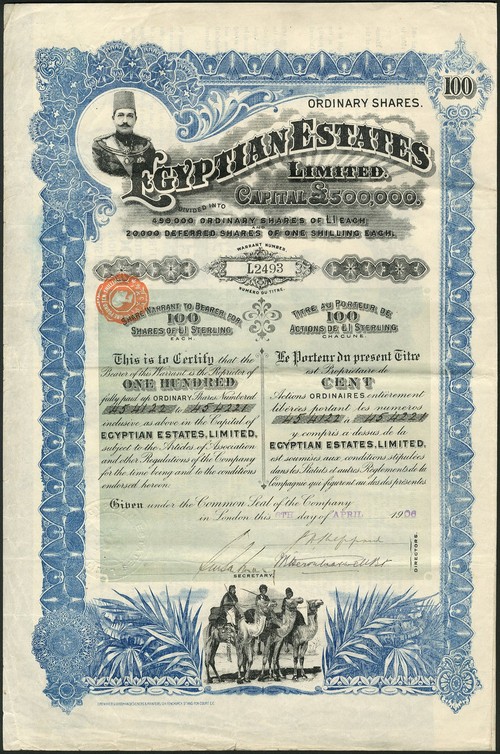 100
ORDINARY SHARES.
EGYPTIAN ESTATES
LIMITED.
CAPITAL £500,000.
DIVIDED INTO
ORDINARY SHARES OF £1 EACH,
AND
20,000 DEFERRED SHARES OF ONE SHILLING EACH.
WARRANT NUMBER
L2493
NUMÉRO DU TITRE.
SHARE WARRANT TO BEARER FOR
100
SHARES OF £1 STERLING
EACH.
This is to Certify that the
Bearer of this Warrant is the Proprietor of
ONE HUNDRED
fully paid up ORDINARY Shares Numbered
inclusive as above in the Capital of
EGYPTIAN ESTATES, LIMITED,
subject to the Articles of Association
and other Regulations of the Company
for the time being and to the conditions
endorsed hereon.
TITRE AU PORTEUR DE
100
ACTIONS DE £1 STERLING
CHACUNE.
Le Porteur du présent Titre
est Propriétaire de
CENT
Actions ORDINAIRES entièrement
libérées portant les numéros
y compris a dessus de la
EGYPTIAN ESTATES, LIMITED.
et soumises aux conditions stipulées
dans les Statuts et autres Règlements de la
Compagnie qui figurent au dos des présentes
Given under the Common Seal of the Company
in London this day of APRIL 1906
DIRECTORS.
SECRETARY.